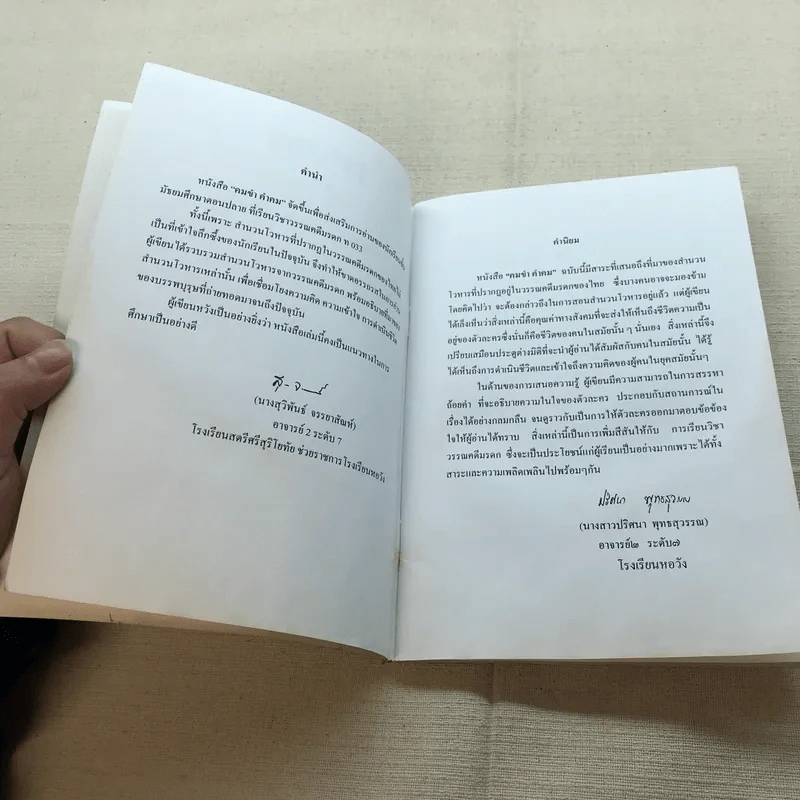 คำนำ
หนังสือ "คมขำ คำคม" จัดขึ้นเพื่อส่งเสริมการอ่านของนักเรียนชั้น
มัธยมศึกษาตอนปลาย ที่เรียนวิชาวรรณคดีมรดก ท 033
ทั้งนี้เพราะ สำนวนโวหารที่ปรากฏในวรรณคดีมรดกของไทยไม่
เป็นที่เข้าใจลึกซึ้งของนักเรียนในปัจจุบัน จึงทำให้ขาดอรรถรสในการอ่าน
ผู้เขียนได้รวบรวมสำนวนโวหารจากวรรณคดีมรดก พร้อมอธิบายที่มาของ
สำนวนโวหารเหล่านั้น เพื่อเชื่อมโยงความคิด ความเข้าใจ การดำเนินชีวิต
ของบรรพบุรุษที่ถ่ายทอดมาจนถึงปัจจุบัน
ผู้เขียนหวังเป็นอย่างยิ่งว่า หนังสือเล่มนี้คงเป็นแนวทางในการ
ศึกษาเป็นอย่างดี
(นางสุวิพันธ์ จรรยาสัณห์)
อาจารย์ 2 ระดับ 7
โรงเรียนสตรีศรีสุริโยทัย ช่วยราชการโรงเรียนหอวัง
คำนิยม
หนังสือ "คมขำ คำคม" ฉบับนี้มีสาระที่เสนอถึงที่มาของสำนวน
โวหารที่ปรากฏอยู่ในวรรณคดีมรดกของไทย ซึ่งบางคนอาจจะมองข้าม
โดยคิดไปว่า จะต้องกล่าวถึงในการสอนสำนวนโวหารอยู่แล้ว แต่ผู้เขียน
ได้เล็งเห็นว่าสิ่งเหล่านี้คือคุณค่าทางสังคมที่จะส่งให้เห็นถึงชีวิตความเป็น
อยู่ของตัวละครซึ่งนั่นก็คือชีวิตของคนในสมัยนั้น ๆ นั่นเอง สิ่งเหล่านี้จึง
เปรียบเสมือนประตูต่างมิติที่จะนำผู้อ่านได้สัมผัสกับคนในสมัยนั้น ได้รู้
ได้เห็นถึงการดำเนินชีวิตและเข้าใจถึงความคิดของผู้คนในยุคสมัยนั้นๆ
ในด้านของการเสนอความรู้ ผู้เขียนมีความสามารถในการสรรหา
ถ้อยคำ ที่จะอธิบายความในใจของตัวละคร ประกอบกับสถานการณ์ใน
เรื่องได้อย่างกลมกลืน จนดูราวกับเป็นการให้ตัวละครออกมาตอบข้อข้อง
ใจให้ผู้อ่านได้ทราบ สิ่งเหล่านี้เป็นการเพิ่มสีสันให้กับ การเรียนวิชา
วรรณคดีมรดก ซึ่งจะเป็นประโยชน์แก่ผู้เรียนเป็นอย่างมากเพราะได้ทั้ง
สาระและความเพลิดเพลินไปพร้อมๆกัน
ปริศนา พุทธสุวรรณ
(นางสาวปริศนา พุทธสุวรรณ)
อาจารย์๒ ระดับ๗
โรงเรียนหอวัง